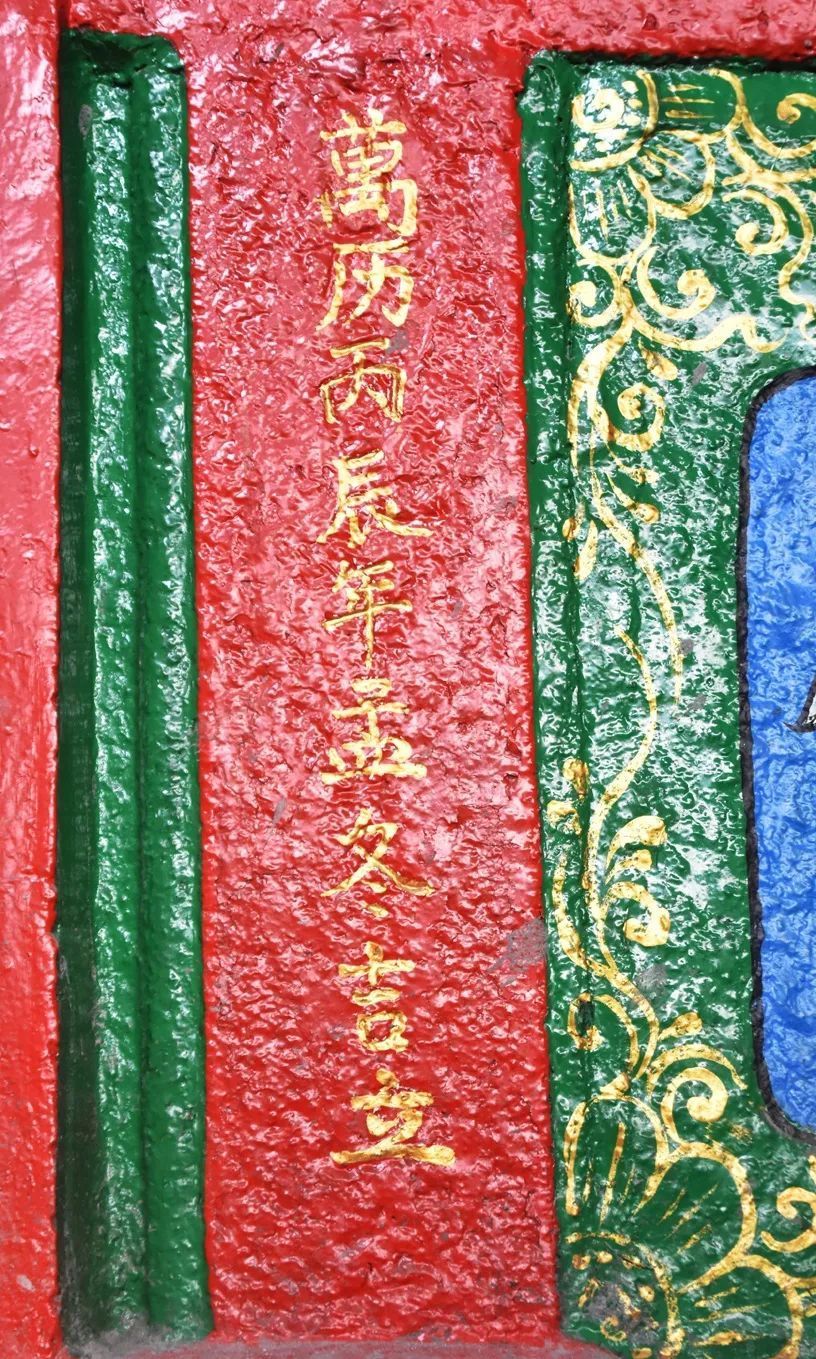 萬历丙辰年孟冬吉立